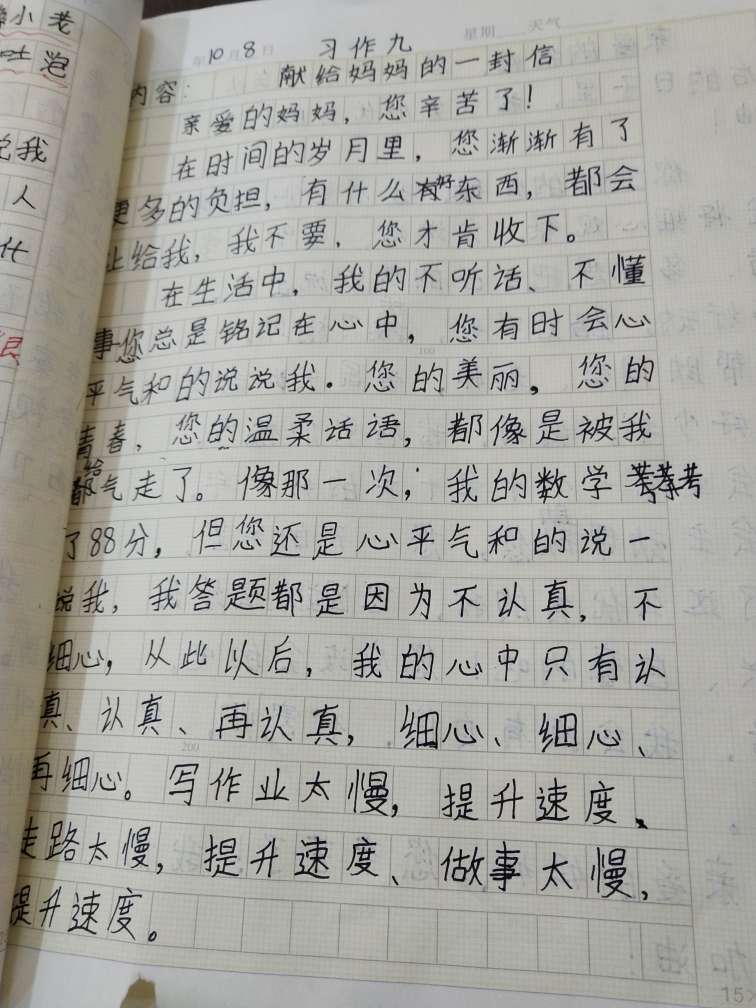 年10月8日 习作九 星期 天气
内容: 献给妈妈的一封信
亲爱的妈妈,您辛苦了!
在时间的岁月里,您渐渐有了
更多的负担,有什么好东西,都会
让给我,我不要,您才肯收下。
在生活中,我的不听话、不懂
事您总是铭记在心中,您有时会心
平气和的说说我.您的美丽,您的
青春,您的温柔话语,都像是被我
给气走了。像那一次,我的数学考
了88分,但您还是心平气和的说一
说我,我答题都是因为不认真,不
细心,从此以后,我的心中只有认
真、认真、再认真,细心、细心、
再细心。写作业太慢,提升速度、
走路太慢,提升速度、做事太慢,
提升速度。
小老
吐泡
说我
人
什
100
200
15
加油!